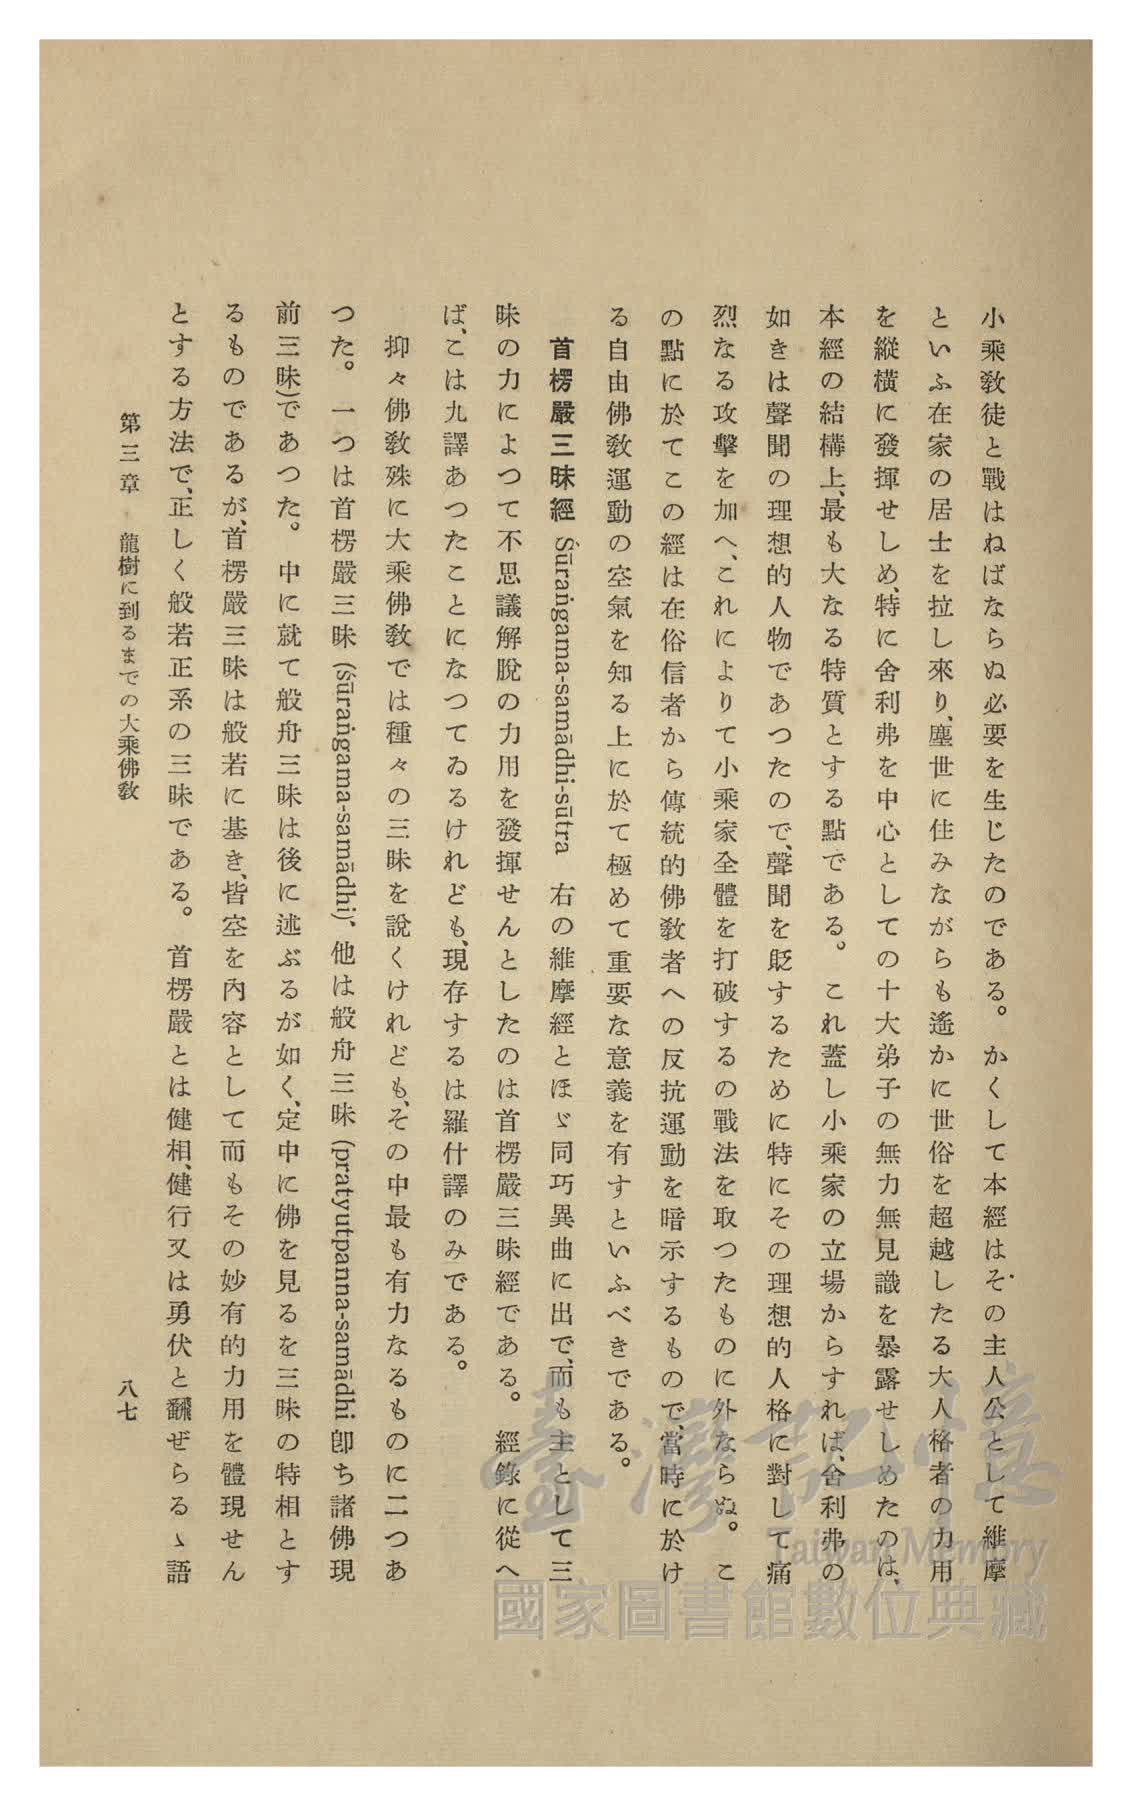 小乘敎徒と戰はねばならぬ必要を生じたのである。かくして本經はその主人公として維摩
といふ在家の居士を拉し來り、塵世に住みながらも遙かに世俗を超越したる大人格者の力用
を縱橫に發揮せしめ、特に舍利弗を中心としての十大弟子の無力無見識を暴露せしめたのは、
本經の結構上、最も大なる特質とする點である。これ蓋し小乘家の立場からすれば、舍利弗の
如きは聲聞の理想的人物であつたので、聲聞を貶するために特にその理想的人格に對して痛
烈なる攻擊を加へ、これによりて小乘家全體を打破するの戰法を取つたものに外ならぬ。こ
の點に於てこの經は在俗信者から傳統的佛敎者への反抗運動を暗示するもので、當時に於け
る自由佛敎運動の空氣を知る上に於て極めて重要な意義を有すといふべきである。
首楞嚴三昧經 Śūraṅgama-samādhi-sūtra 右の維摩經とほゞ同巧異曲に出で、而も主として三
昧の力によつて不思議解脫の力用を發揮せんとしたのは首楞嚴三昧經である。經錄に從へ
ば、こは九譯あつたことになつてゐるけれども、現存するは羅什譯のみである。
抑々佛敎殊に大乘佛敎では種々の三昧を說くけれども、その中最も有力なるものに二つあ
つた。一つは首楞嚴三昧 (Śūraṅgama-samādhi)、他は般舟三昧 (pratyutpanna-samādhi 卽ち諸佛現
前三昧)であつた。中に就て般舟三昧は後に述ぶるが如く、定中に佛を見るを三昧の特相とす
るものであるが、首楞嚴三昧は般若に基き、皆空を內容として而もその妙有的力用を體現せん
とする方法で、正しく般若正系の三昧である。首楞嚴とは健相、健行又は勇伏と飜ぜらるゝ語
第三章 龍樹に到るまでの大乘佛敎
八七
臺灣記憶
Taiwan Memory
國家圖書館數位典藏